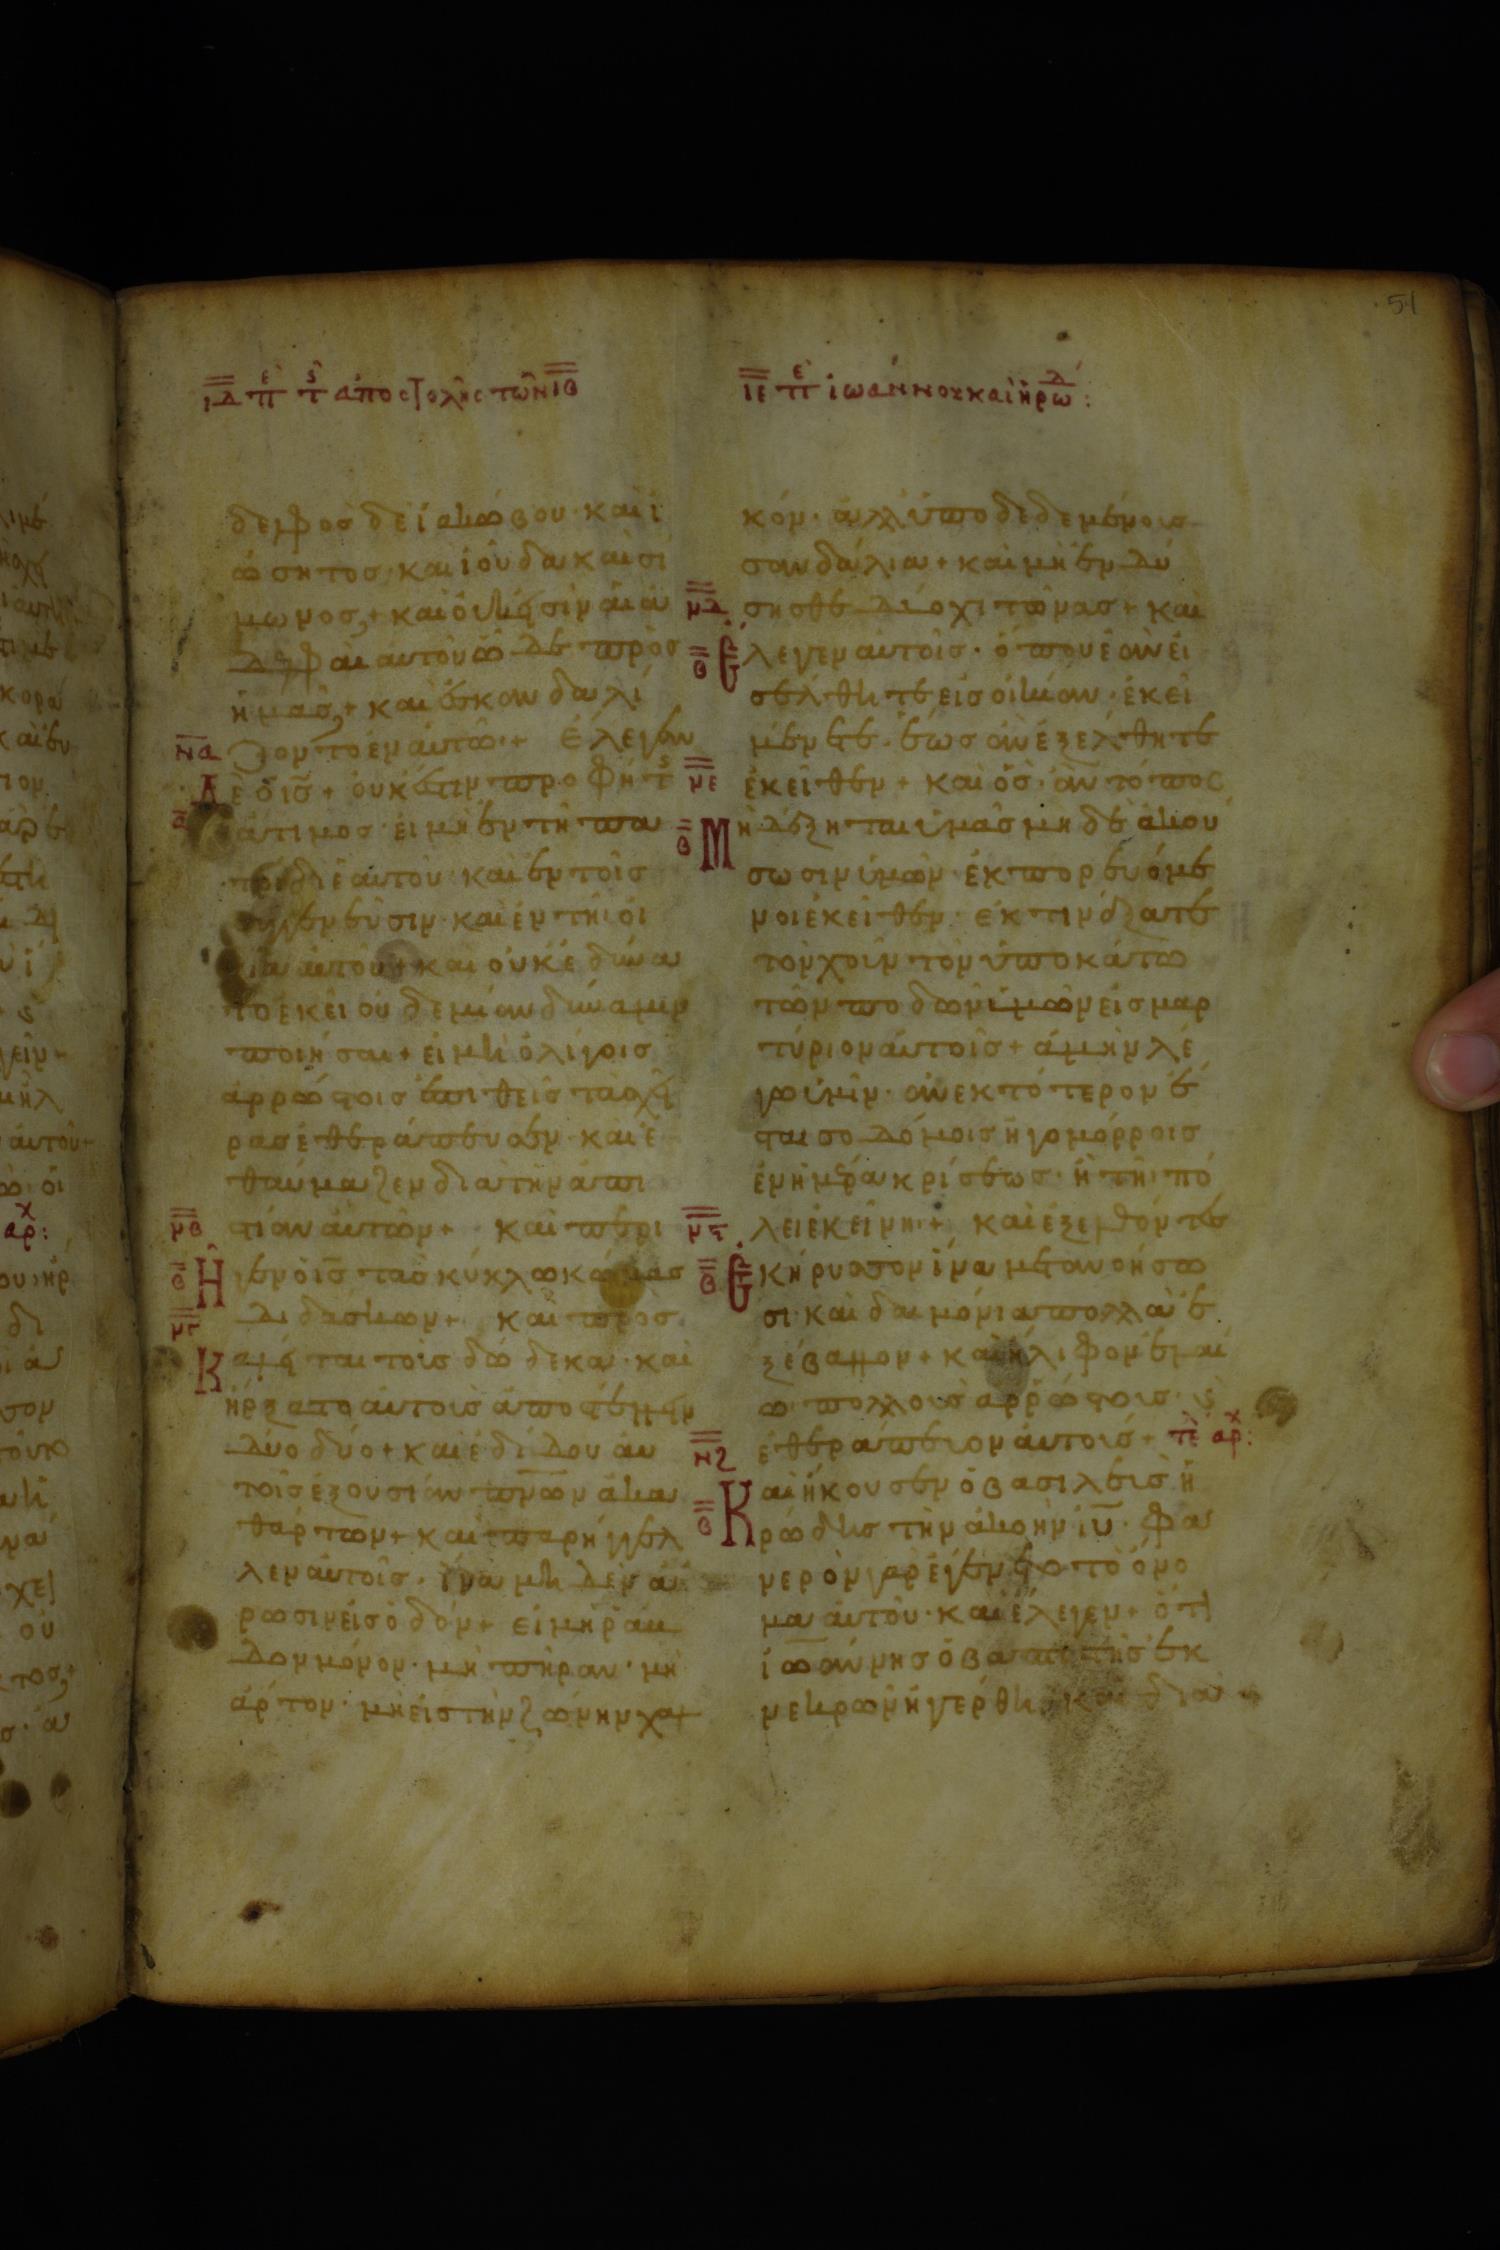 51
ΙΔ π̅ε τ̅ς ἀποστολῆς τῶν ΙΒ
δελφὸς δὲ ἰακώβου· καὶ ἰ
ωσῆτος· καὶ ἰούδα καὶ σί
μωνος, + καὶ οὐκ εἰσὶν αἱ ἀ
δελφαὶ αὐτοῦ ὧδε πρὸς
ἡμᾶς, + καὶ ἐσκανδαλί
ΝΑ
ζοντο ἐν αὐτῶ· + ἔλεγεν
Δὲ ὁ ι̅ς̅ + οὐκ ἔστιν προφήτ
Α
ἄτιμος· εἰ μὴ ἐν τῆ πα
τρίδι ἑαυτοῦ· καὶ ἐν τοῖς
συγγενεῦσιν· καὶ ἐν τῆ οἰ
κία αὐτοῦ + καὶ οὐκ ἐδύνα
το ἐκεῖ οὐδεμίαν δύναμιν
ποιῆσαι + εἰ μὴ ὀλίγοις
ἀρρώστοις ἐπιθεὶς τὰς χεῖ
ρας ἐθεράπευσεν· καὶ ἐ
θαύμαζεν διὰ τὴν ἀπι
ΝΒ
στίαν αὐτῶν + καὶ περι
Β
Ἦγεν ὁ ι̅ς̅ τὰς κύκλω κώμας
ΝΓ
διδάσκων + καὶ προσ
Καλεῖται τοὺς δώδεκα· καὶ
ἤρξατο αὐτοὺς ἀποστέλλειν
δύο δύο + καὶ ἐδίδου αὐ
τοῖς ἐξουσίαν π̅ν̅ων ἀκα
θάρτων + καὶ παρήγγελ
λεν αὐτοῖς· ἵνα μὴδὲν αἴ
ρωσιν εἰς ὁδόν + εἰ μὴ ῥάβ
δον μόνον· μὴ πήραν· μὴ
ἄρτον· μὴ εἰς τὴν ζώνην χαλ
ΙΕ π̅ε ἰωάννου καὶ ἡρώδ :
κόν· ἀλλ' ὑποδεδεμένοις
σανδάλια + καὶ μὴ ἐνδύ
ΝΔ
σησθε δύο χιτῶνας + καὶ
Β
Ἔλεγεν αὐτοῖς· ὅπου ἐὰν εἰ
σέλθητε εἰς οἰκίαν· ἐκεῖ
μένετε· ἕως ἂν ἐξέλθητε
ΝΕ
ἐκεῖθεν + καὶ ὃς ἂν τόπος
Β
Μὴ δέξηται ὑμᾶς μηδὲ ἀκού
σωσιν ὑμῶν· ἐκπορευόμε
νοι ἐκεῖθεν· ἐκτινάξατε
τὸν χοῦν τὸν ὑποκάτω
τῶν ποδῶν ὑμῶν εἰς μαρ
τύριον αὐτοῖς + ἀμὴν λέ
γω ὑμῖν· ἀνεκτότερον ἔ
σται σοδόμοις ἢ γομόρροις
ἐν ἡμέρα κρίσεως· ἢ τῆ πό
ΝϚ
λει ἐκείνη· + καὶ ἐξελθόντες
Β
Ἐκήρυσσον ἵνα μετανοήσω
σι· καὶ δαιμόνια πολλὰ ἐ
ξέβαλλον + καὶ ἤλιφον ἐλαί
ω πολλοὺς ἀρρώστους· ϛ
ἐθεράπευον αὐτούς + τέ ἀρχ:
ΝΖ
Β
Καὶ ἤκουσεν ὁ βασιλεὺς ἡ
ρώδης τὴν ἀκοὴν ι̅υ̅· φα
νερὸν γὰρ ἐγένετο τὸ ὄνο
μα αὐτοῦ· καὶ ἔλεγεν + ὅτι
ἰωάννης ὁ βαπτιστὴς ἐκ
νεκρῶν ἠγέρθη· καὶ διὰ